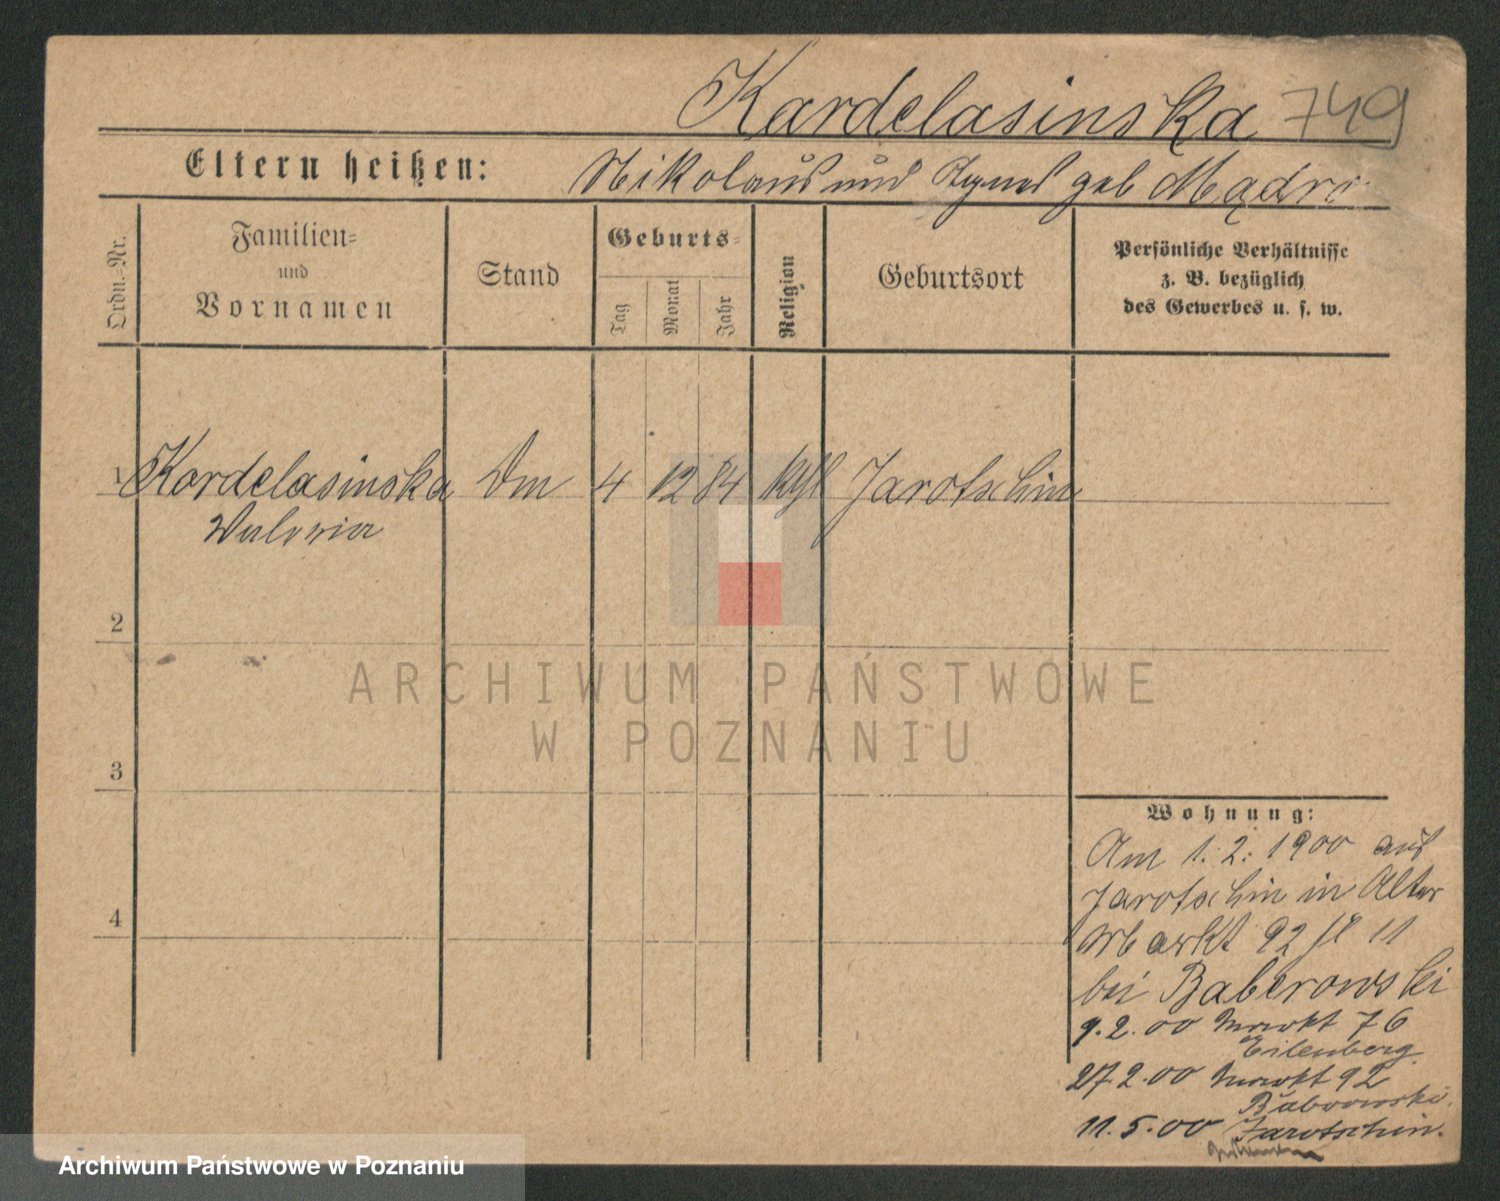 Kardelasinska 749
Eltern heißen: Nikolaus und Agnes geb Mądra
Ordn.-Nr.
Familien-
und
Vornamen
Stand
Geburts-
Tag
Monat
Jahr
Religion
Geburtsort
Persönliche Verhältnisse
z. B. bezüglich
des Gewerbes u. s. w.
1 Kardelasinska Dm 4 12 84 kath Jarotschin
Waleria
2
3
4
Wohnung:
Am 1. 2. 1900 aus
Jarotschin in Alter
Markt 92 11
bei Baberowski
9.2.00 Markt 76
Eilenberg
27 2.00 Markt 92
Baborowski.
11.5.00 Jarotschin.
ARCHIWUM PAŃSTWOWE
W POZNANIU
Archiwum Państwowe w Poznaniu